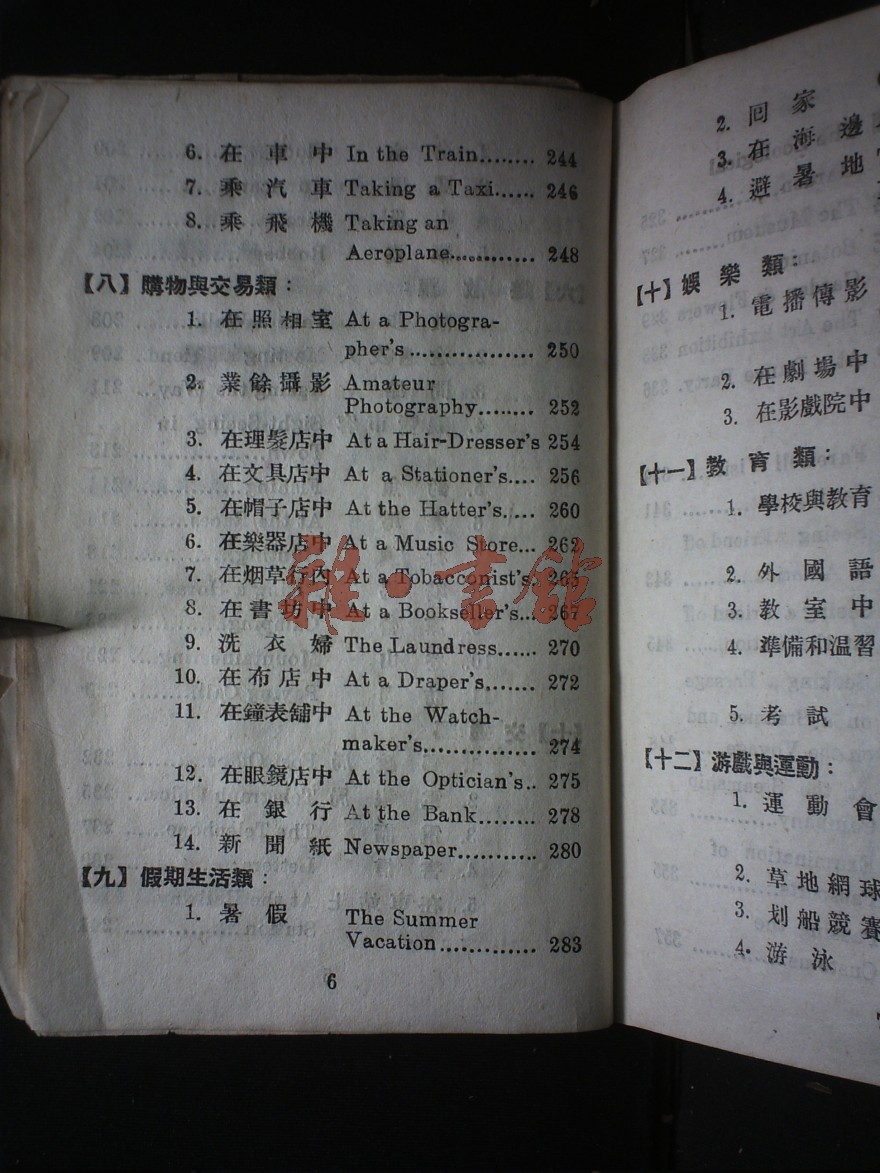 6. 在車中 In the Train........ 244
7. 乘汽車 Taking a Taxi...... 246
8. 乘飛機 Taking an
Aeroplane............ 248
【八】購物與交易類：
1. 在照相室 At a Photogra-
pher's ................. 250
2. 業餘攝影 Amateur
Photography........ 252
3. 在理髮店中 At a Hair-Dresser's 254
4. 在文具店中 At a Stationer's.... 256
5. 在帽子店中 At the Hatter's..... 260
6. 在樂器店中 At a Music Store... 262
7. 在烟草行內 At a Tobacconist's. 265
8. 在書坊中 At a Bookseller's... 267
9. 洗衣婦 The Laundress...... 270
10. 在布店中 At a Draper's....... 272
11. 在鐘表舖中 At the Watch-
maker's............... 274
12. 在眼鏡店中 At the Optician's.. 275
13. 在銀行 At the Bank ........ 278
14. 新聞紙 Newspaper........... 280
【九】假期生活類：
1. 暑假 The Summer
Vacation ............. 283
6
2. 回家
3. 在海邊
4. 避暑地
【十】娛樂類：
1. 電播傳影
2. 在劇場中
3. 在影戲院中
【十一】教育類：
1. 學校與教育
2. 外國語
3. 教室中
4. 準備和温習
5. 考試
【十二】游戲與運動：
1. 運動會
2. 草地網球
3. 划船競賽
4. 游泳
雜·書館